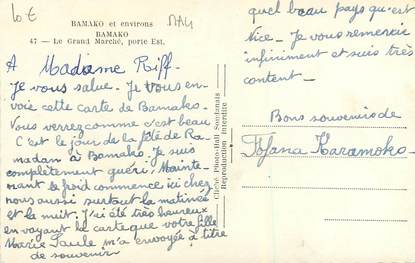 10 €
MALI
BAMAKO et environs
BAMAKO
47 - Le Grand Marché, porte Est.
A Madame Riff
Je vous salue. Je vous en-
voie cette carte de Bamako.
Vous verrez comme c'est beau
C'est le jour de la fête de Ra-
madan à Bamako. Je suis
complètement guéri. Mainte-
nant le froid commence ici chez
nous aussi surtout la matinée
et la nuit. J'ai été très heureux
en voyant la carte que votre fille
Marie Paule m'a envoyée à titre
de souvenir
Cliché Photo-Hall Soudanais
Reproduction Interdite
quel beau pays qu'est
Nice. Je vous remercie
infiniment et suis très
content.
Bons souvenirs de
Fofana Karamoko.